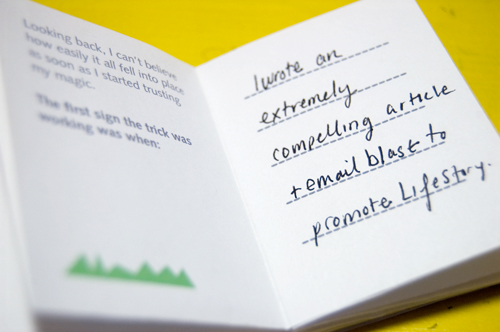 Looking back, I can't believe
how easily it all fell into place
as soon as I started trusting
my magic.
The first sign the trick was
working was when:
I wrote an
extremely
compelling article
+ email blast to
promote Lifestory.